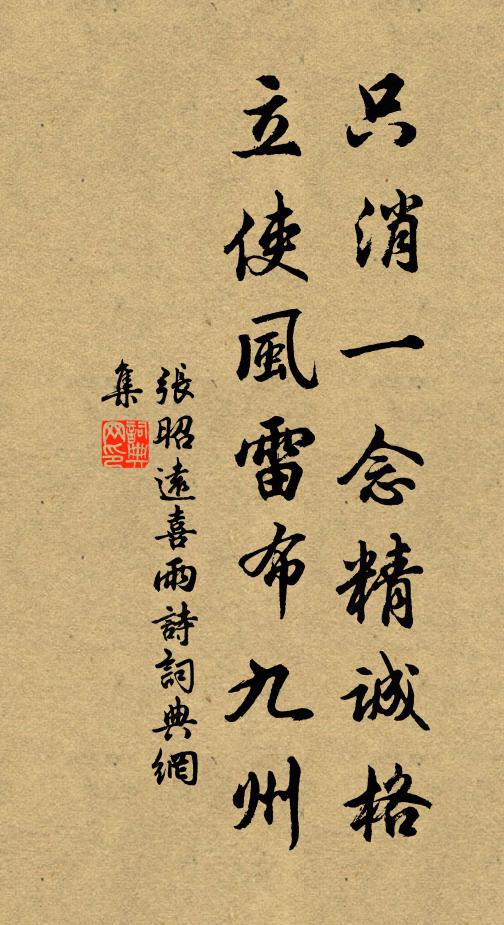 只消一念精誠格
立使風雷布九州
張昭遠喜雨詩詞典網
集
詞典網印